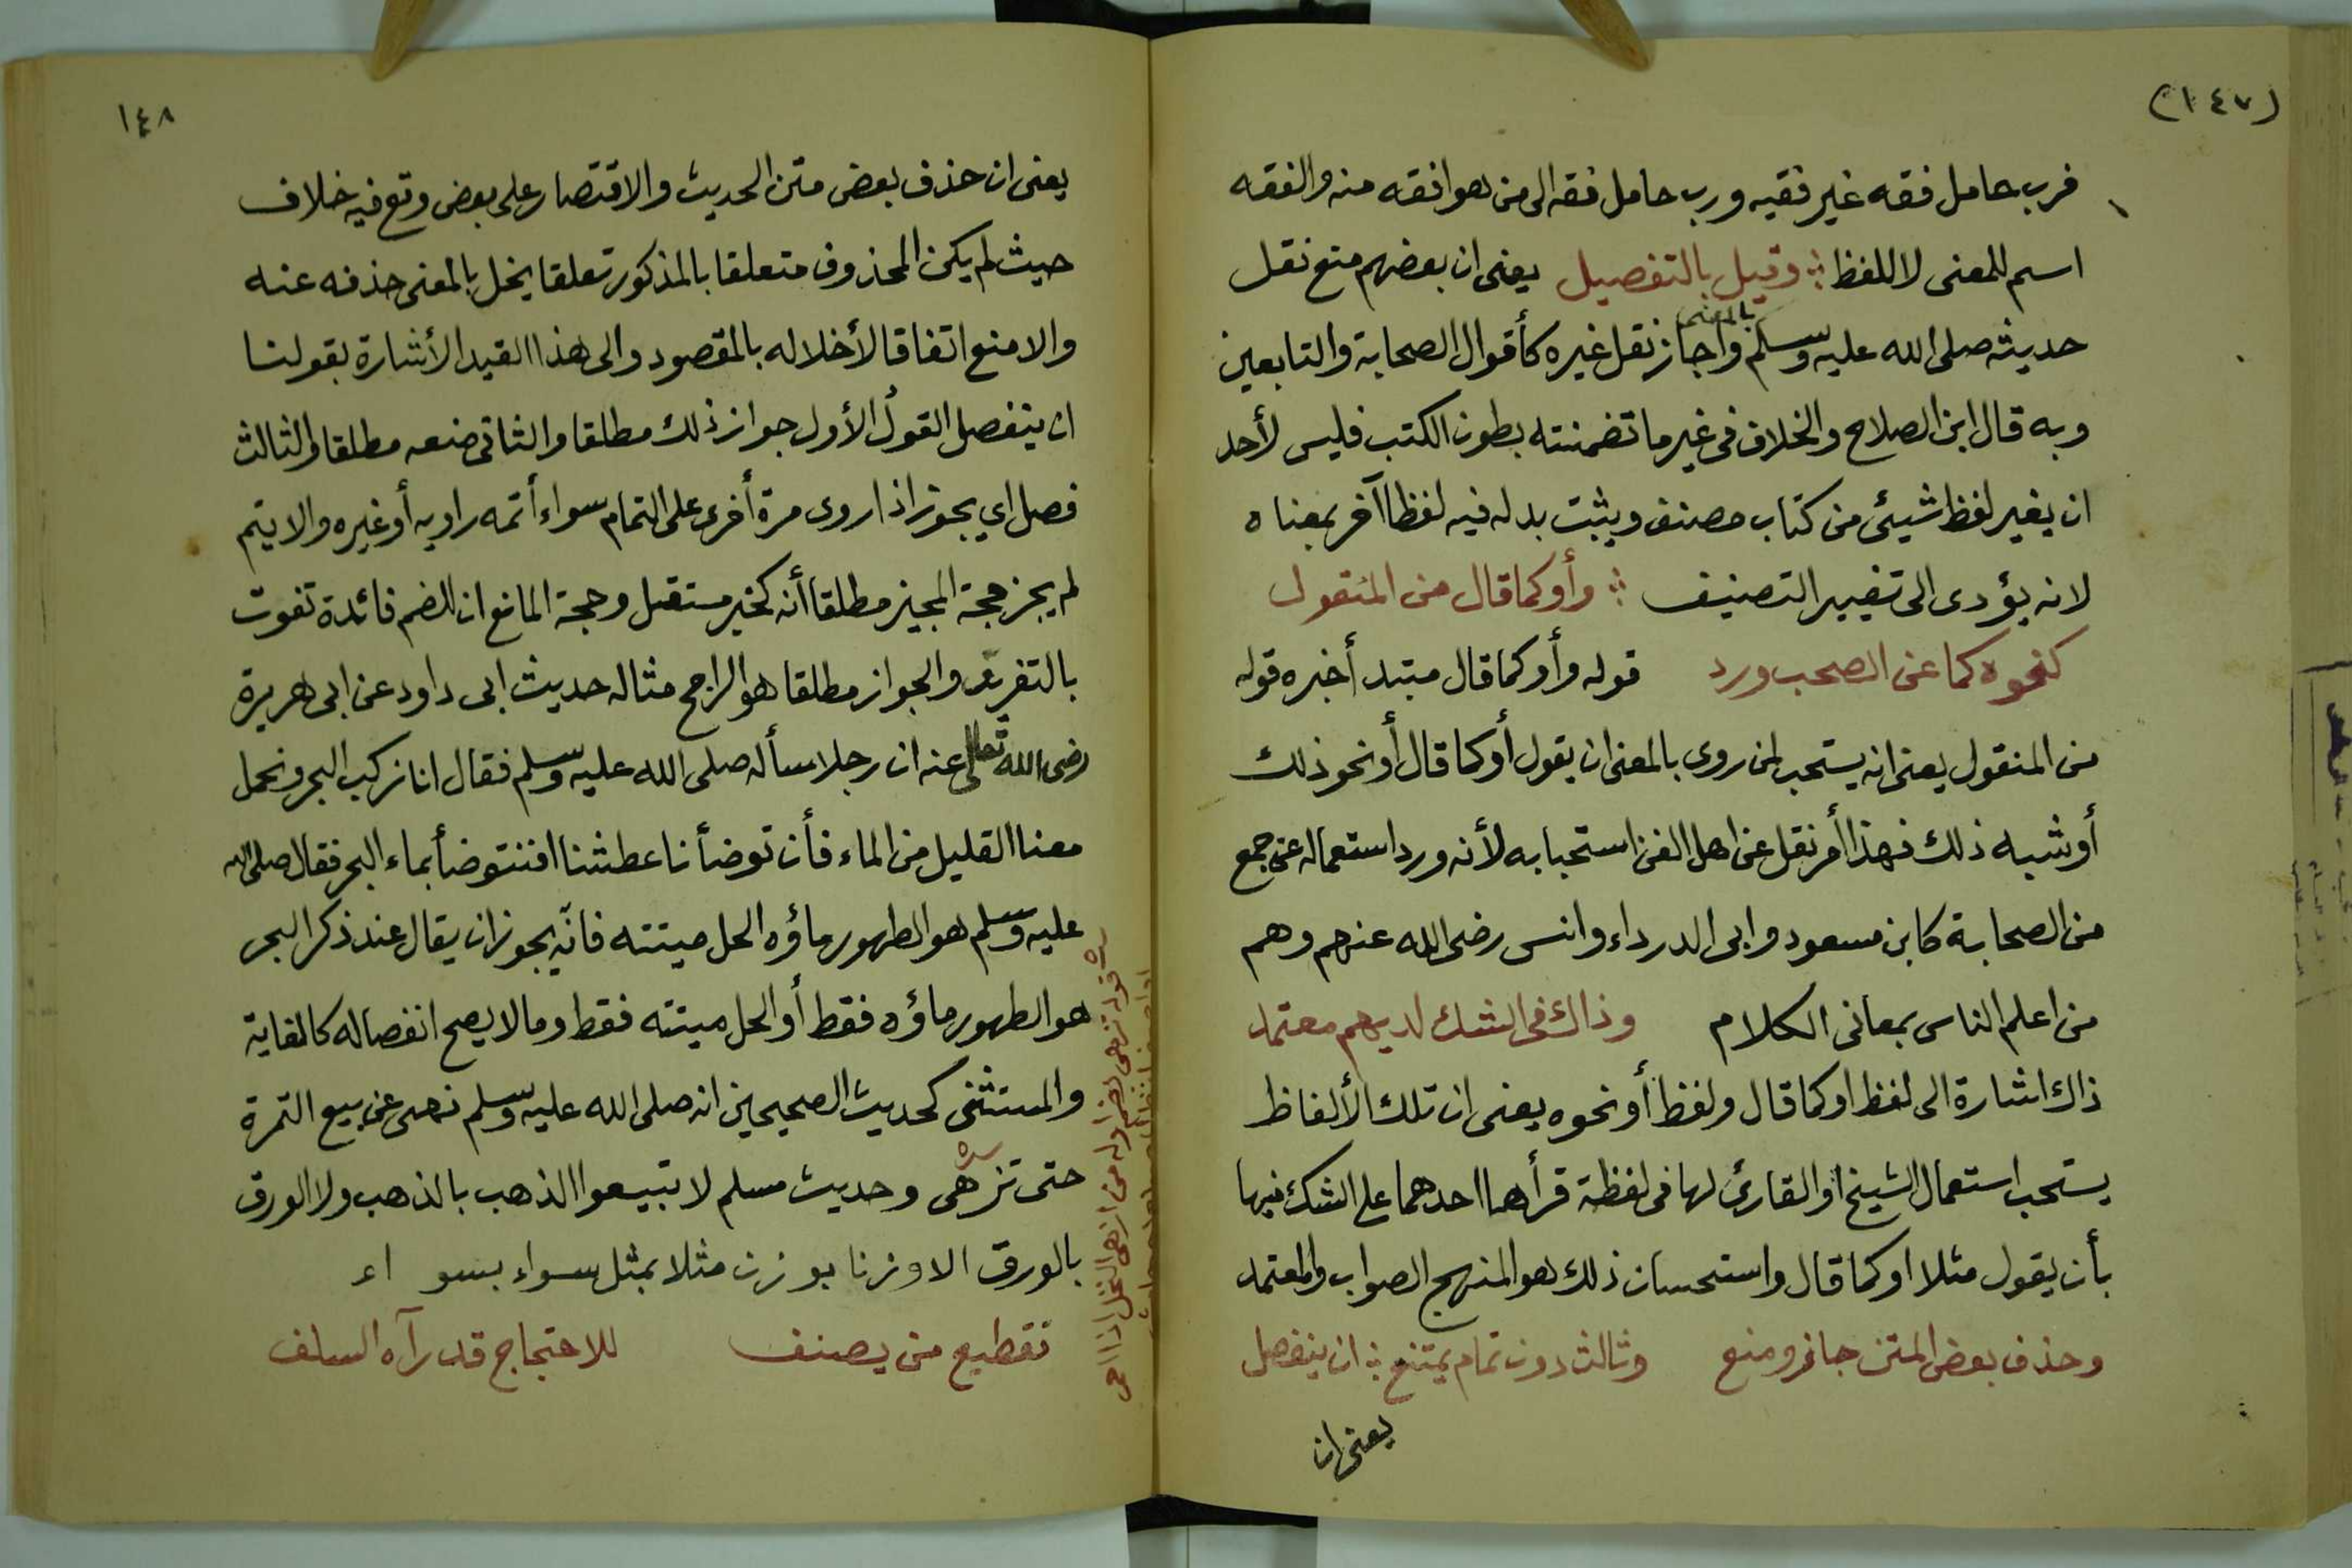 (١٤٧)
فرب حامل فقه غير فقيه ورب حامل فقه الى من هو افقه منه والفقه
اسم للمعنى لا للفظ ؞ وقيل بالتفصيل يعنى ان بعضهم منع نقل
حديثه صلى الله عليه وسلم بالمعنى واجاز نقل غيره كأقوال الصحابة والتابعين
وبه قال ابن الصلاح والخلاف فى غير ما تضمنته بطون الكتب فليس لأحد
ان يغير لفظ شيئ من كتاب مصنف ويثبت بدله فيه لفظا آخر بمعناه
لانه يؤدى الى تغيير التصنيف ؞ وأو كما قال من المنقول
كنحوه كما عن الصحب ورد قوله وأو كما قال مبتدأ خبره قوله
من المنقول يعنى انه يستحب لمن روى بالمعنى ان يقول أو كما قال أو نحو ذلك
أو شبه ذلك فهذا أمر نقل عن اهل الفن استحبابه لأنه ورد استعماله عن جمع
من الصحابة كابن مسعود وابى الدرداء وانس رضى الله عنهم وهم
من اعلم الناس بمعانى الكلام وذاك فى الشك لديهم معتمد
ذاك اشارة الى لفظ او كما قال ولفظ أو نحوه يعنى ان تلك الألفاظ
يستحب استعمال الشيخ او القارئ لها فى لفظة قرأها احدهما على الشك فيها
بأن يقول مثلا او كما قال واستحسان ذلك هو المنهج الصواب والمعتمد
وحذف بعض المتن جائز ومنع وثالث دون تمام يمتنع ؞ ان ينفصل
يعنى ان
١٤٨
يعنى ان حذف بعض متن الحديث والاقتصار على بعض وقع فيه خلاف
حيث لم يكن المحذوف متعلقا بالمذكور تعلقا يخل بالمعنى حذفه عنه
والا منع اتفاقا لأخلاله بالمقصود والى هذا القيد الأشارة بقولنا
ان ينفصل القول الأول جواز ذلك مطلقا والثانى منعه مطلقا والثالث
فصل اي يجوز اذا روى مرة أخرى على التمام سواء أتمه راويه أو غيره والا يتم
لم يجز حجة المجيز مطلقا أنه كخبر مستقل وحجة المانع ان للضم فائدة تفوت
بالتفريق والجواز مطلقا هو الراجح مثاله حديث ابى داود عن ابى هريرة
رضى الله تعالى عنه ان رجلا سأله صلى الله عليه وسلم فقال انا نركب البحر ونحمل
معنا القليل من الماء فأن توضأنا عطشنا افنتوضأ بماء البحر فقال صلى الله
عليه وسلم هو الطهور ماؤه الحل ميتته فانه يجوز ان يقال عند ذكر البحر
هو الطهور ماؤه فقط أو الحل ميتته فقط وما لا يصح انفصاله كالغاية
والمستثنى كحديث الصحيحين انه صلى الله عليه وسلم نهى عن بيع الثمرة
حتى تزهى وحديث مسلم لا تبيعوا الذهب بالذهب ولا الورق
بالورق الا وزنا بوزن مثلا بمثل سواء بسواء
تقطيع من يصنف للاحتجاج قد رآه السلف
قوله تزهى بضم اوله من ازهى النخل اذا احمر